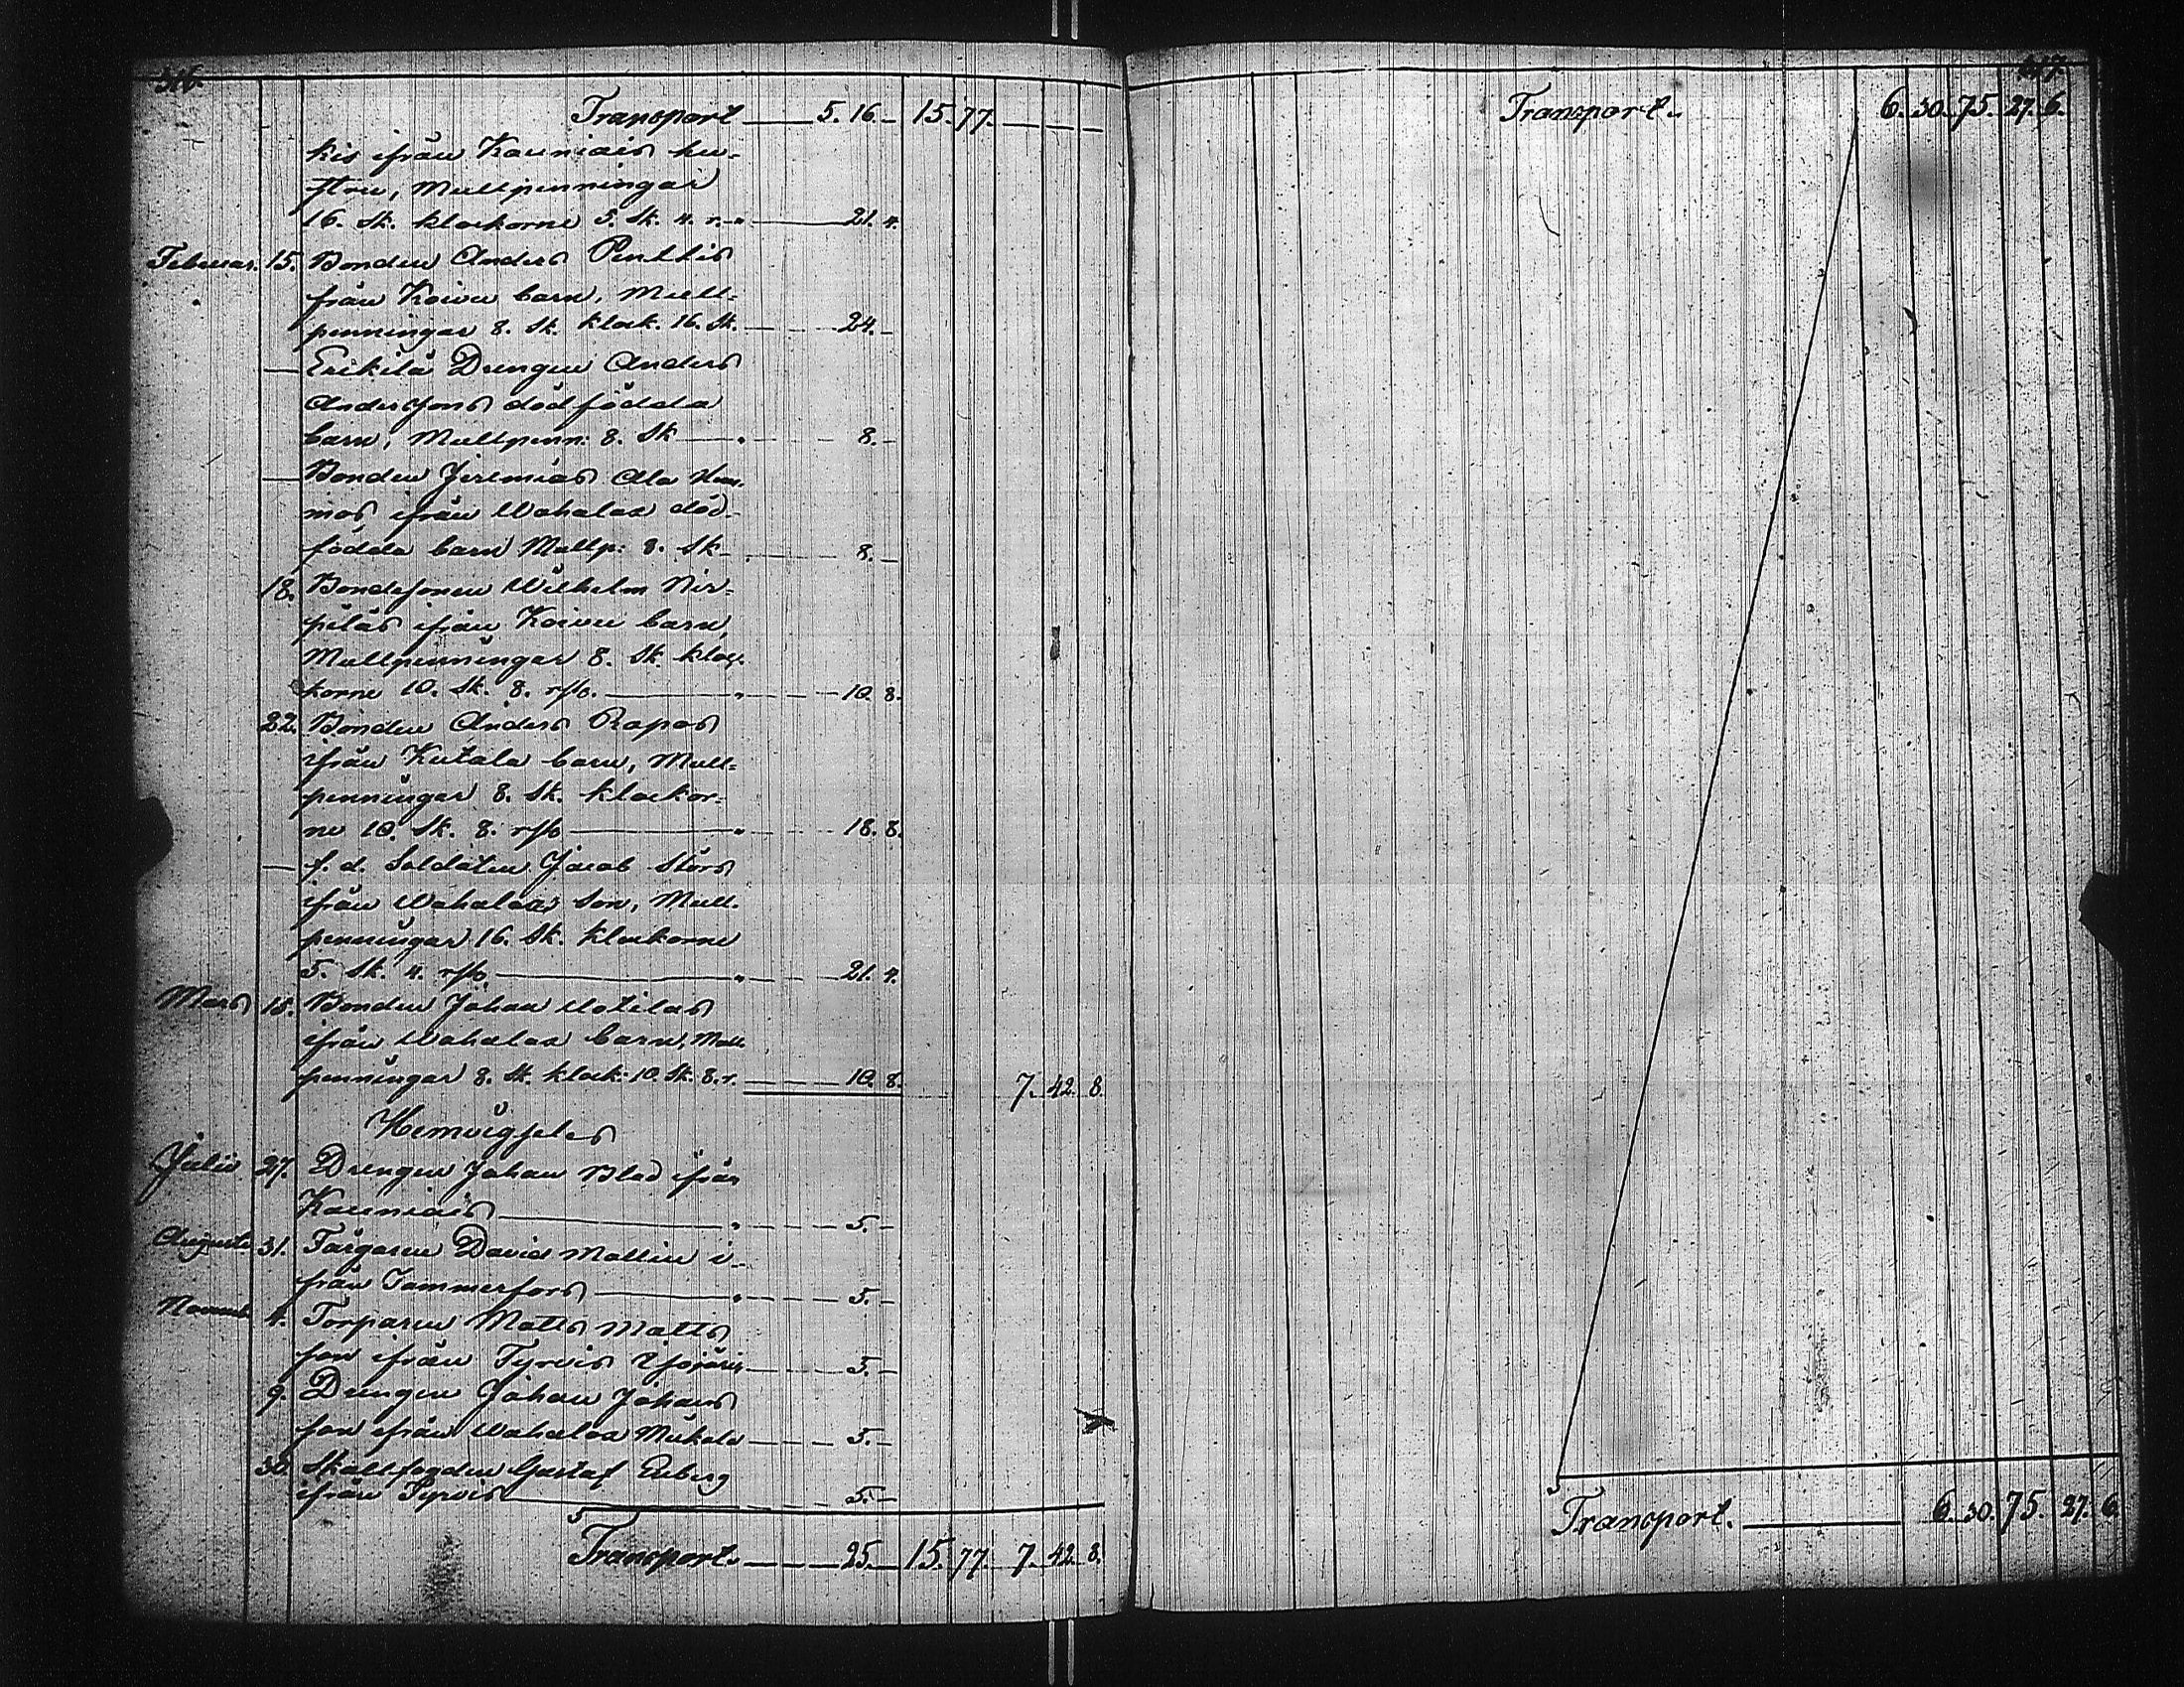 316.
Transport 5. 16. 15. 77.
kis ifrån Kauniais hu-
stru, Mullpenningar
16. Sk. klockorne 5. Sk. 4. r. 21. 4.
Februar. 15. Bonden Anders Penttis
från Koivu barn, Mull-
penningar 8. Sk. klock. 16. Sk. 24.
Erikilä Drengen Anders
Andersons dödfödda
barn, Mullpenn: 8. Sk 8.
Bonden Jeremias Ala
mos ifrån Wahalax död-
födda barn Mullp: 8. Sk 8.
18. Bondesonen Wilhelm Nir-
piläs ifrån Koivu barn,
Mullpenningar 8. Sk. kloc-
korne 10. Sk. 8. rst. 10. 8.
22. Bonden Anders Rapas
ifrån Kutala barn, Mull-
penningar 8. Sk. klockor-
ne 10. Sk. 8. rst 18. 8.
f. d. Soldaten Jacob Störs
ifrån Wahalax son, Mull-
penningar 16. Sk. klockorne
5. Sk. 4. rst. 21. 4.
Mars 15. Bonden Johan Uotilas
ifrån Wahalax barn, Mull-
penningar 8. Sk. klock: 10. Sk. 8. r. 10. 8. 7. 42. 8.
Hemvigsler
Julii 27. Drengen Johan Blad ifrån
Kauniais 5.
Augusti 31. Färgaren David Mallin i-
från Tammerfors 5.
Novemb 4. Torparen Matts Matts
son ifrån Tyrvis 5.
9. Drengen Johan Johans
son ifrån Wahalax Mickola 5.
30. Skallfogden Gustaf Enberg
ifrån Tyrvis 5.
Transport 25. 15. 77. 7. 42. 8.
317.
Transport. 6. 30. 75. 27. 6.
Transport. 6. 30. 75. 27. 6.